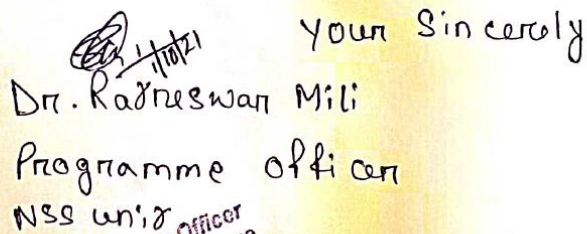 Your Sincerely
1/10/21
Dr. Ratneswar Mili
Programme officer
NSS unit
Officer